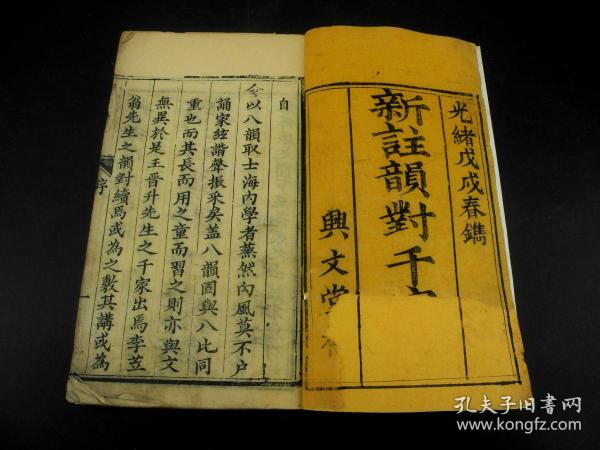 光緒戊戌春鐫
新註韻對千
興文堂
自
今以八韻取士海内學者蒸然向風莫不户
誦家絃諧聲振采矣盖八韻固與八比同
重也而其長而用之童而習之則亦與文
無異於是王晋升先生之千家出焉李笠
翁先生之韻對續焉或為之敷其講或為
序
一
孔夫子旧书网
www.kongfz.com